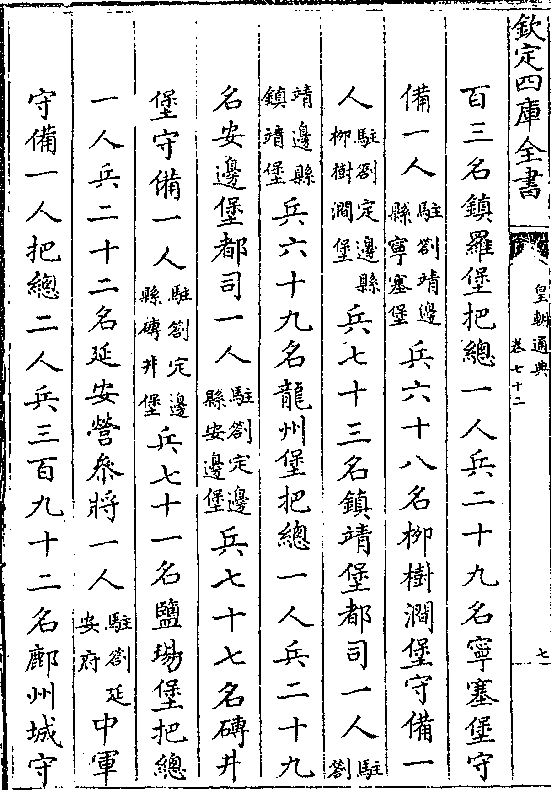 欽定四庫全書
皇朝通典
卷七十二
七
百三名鎮羅堡把總一人兵二十九名寧塞堡守
備一人駐劄靖邊縣寧塞堡兵六十八名柳樹澗堡守備一
人駐劄定邊縣柳樹澗堡兵七十三名鎮靖堡都司一人駐劄
靖邊縣鎮靖堡兵六十九名龍州堡把總一人兵二十九
名安邊堡都司一人駐劄定邊縣安邊堡兵七十七名磚井
堡守備一人駐劄定邊縣磚井堡兵七十一名鹽場堡把總
一人兵二十二名延安營叅將一人駐劄延安府中軍
守備一人把總二人兵三百九十二名鄜州城守